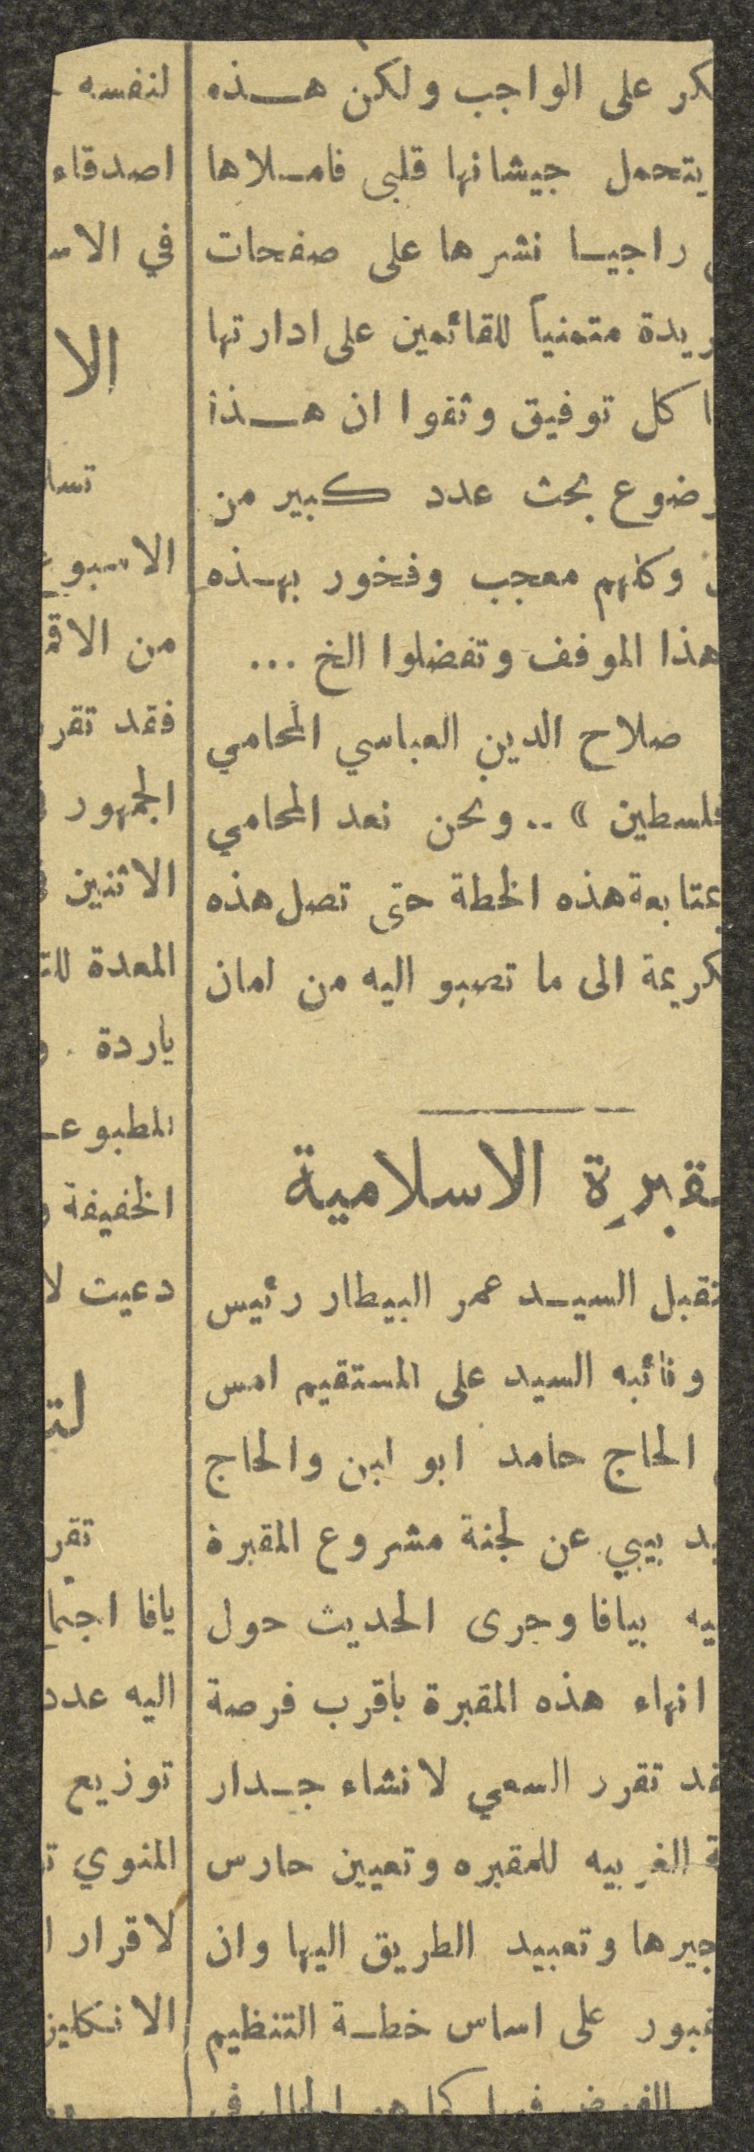 كر على الواجب ولكن هـذه
يتحمل جيشانها قلبي فامـلاها
راجيـا نشرها على صفحات
ريدة متمنياً للقائمين على ادارتها
ا كل توفيق وثقوا ان هـذا
رضوع بحث عدد كبير من
وكلهم معجب وفخور بهـذه
هذا الموفف وتفضلوا الخ ...
صلاح الدين العباسي المحامي
فلسطين » .. ونحن نعد المحامي
بمتابعة هذه الخطة حتى تصل هذه
كريمة الى ما تصبو اليه من امان
قبرة الاسلامية
تقبل السيـد عمر البيطار رئيس
ونائبه السيد على المستقيم امس
الحاج حامد ابو لبن والحاج
يد بيبي عن لجنة مشروع المقبرة
يه بيافا وجرى الحديث حول
انهاء هذه المقبرة باقرب فرصة
قد تقرر السعي لانشاء جـدار
ة الغربيه للمقبره وتعيين حارس
جيرها وتعبيد الطريق اليها وان
قبور على اساس خطـة التنظيم
كما هو الحال في
لنفسه
اصدقاء
في الاس
الا
تسا
الاسبوع
من الاق
فقد تقر
الجمهور
الاثنين
المعدة للت
ياردة . و
المطبوعـ
الخفيفة و
دعيت لا
لت
تقر
يافا اجتما
اليه عدد
توزيع
المنوي ت
لاقرار ا
الانكليز